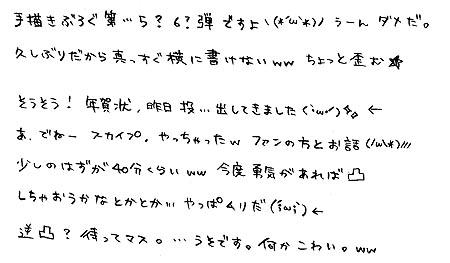 手描きぶろぐ 第…5?6?弾ですよ\(*'ω'*)ノ うーん ダメだ。
久しぶりだから真っすぐ横に書けないww ちょっと歪む☆
そうそう!年賀状,昨日 投…出してきました(・ω・´) ←
あ,でねー スカイプ,やっちゃったw ファンの方とお話(ノω\*)!!!
少しのはずが40分くらいww 今度 勇気があれば凸
しちゃおうかなとかとか… やっぱムリだ(・ω・) ←
逆凸?待ってマス。…うそです。何かこわい。ww